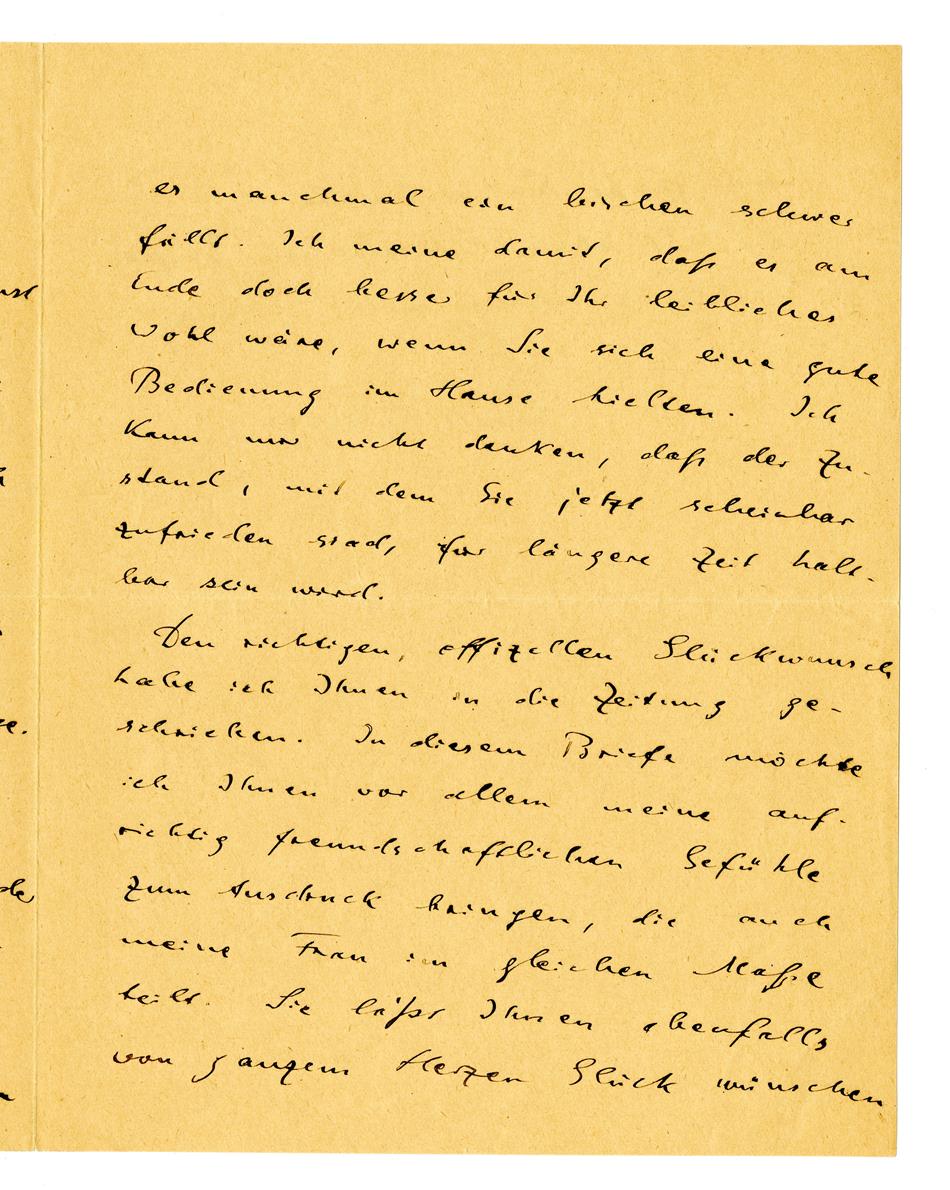 es manchmal ein bischen schwer
fällt. Ich meine damit, daß es am
Ende doch besser für Ihr leibliches
Wohl wäre, wenn Sie sich eine gute
Bedienung im Hause hielten. Ich
kann mir nicht denken, daß der Zu-
stand, mit dem Sie jetzt scheinbar
zufrieden sind, für längere Zeit halt-
bar sein wird.
Den richtigen, offiziellen Glückwunsch
habe ich Ihnen in die Zeitung ge-
schrieben. In diesem Briefe möchte
ich Ihnen vor allem meine auf-
richtig freundschaftlichen Gefühle
zum Ausdruck bringen, die auch
meine Frau im gleichen Maße
teilt. Sie läßt Ihnen ebenfalls
von ganzem Herzen Glück wünschen